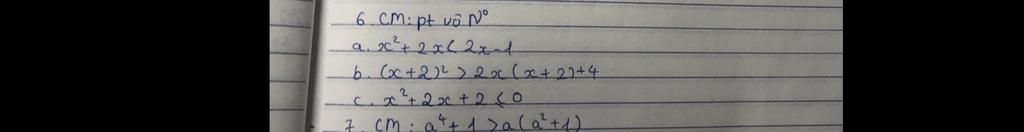 6. CM: pt vô N°
a. x² + 2x < 2x - 1
b. (x+2)² > 2x(x+2)+4
c. x² + 2x + 2 ≤ 0
7. CM: a⁴ + 1 > a(a²+1)